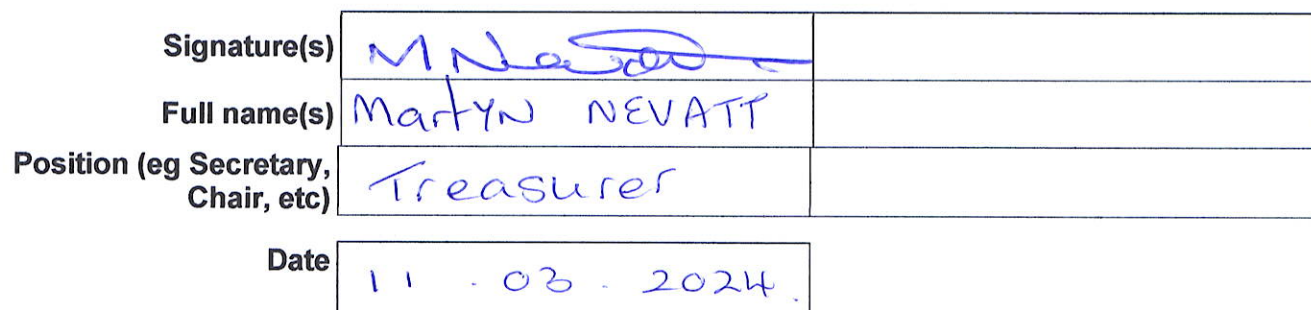 Signature(s) M Nevatt
Full name(s) Martyn NEVATT
Position (eg Secretary,
Chair, etc) Treasurer
Date 11 . 03 . 2024.